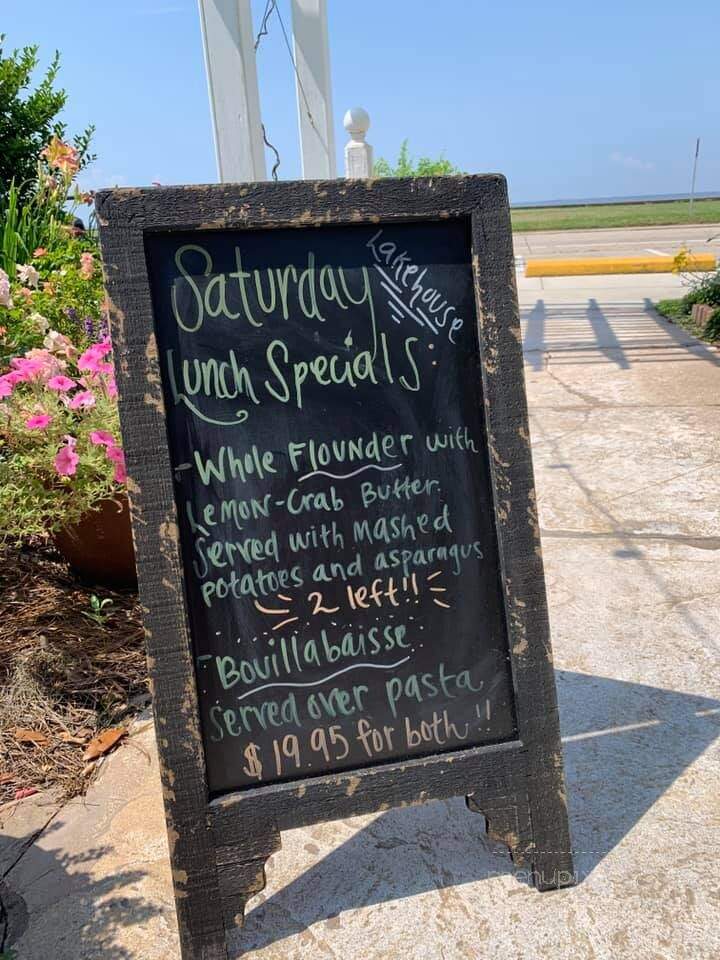 Saturday
Lakehouse
Lunch Specials:
- Whole Flounder with
Lemon-Crab Butter.
Served with Mashed
potatoes and asparagus
2 left!!
- Bouillabaisse
Served over pasta
$19.95 for both!!
menupix